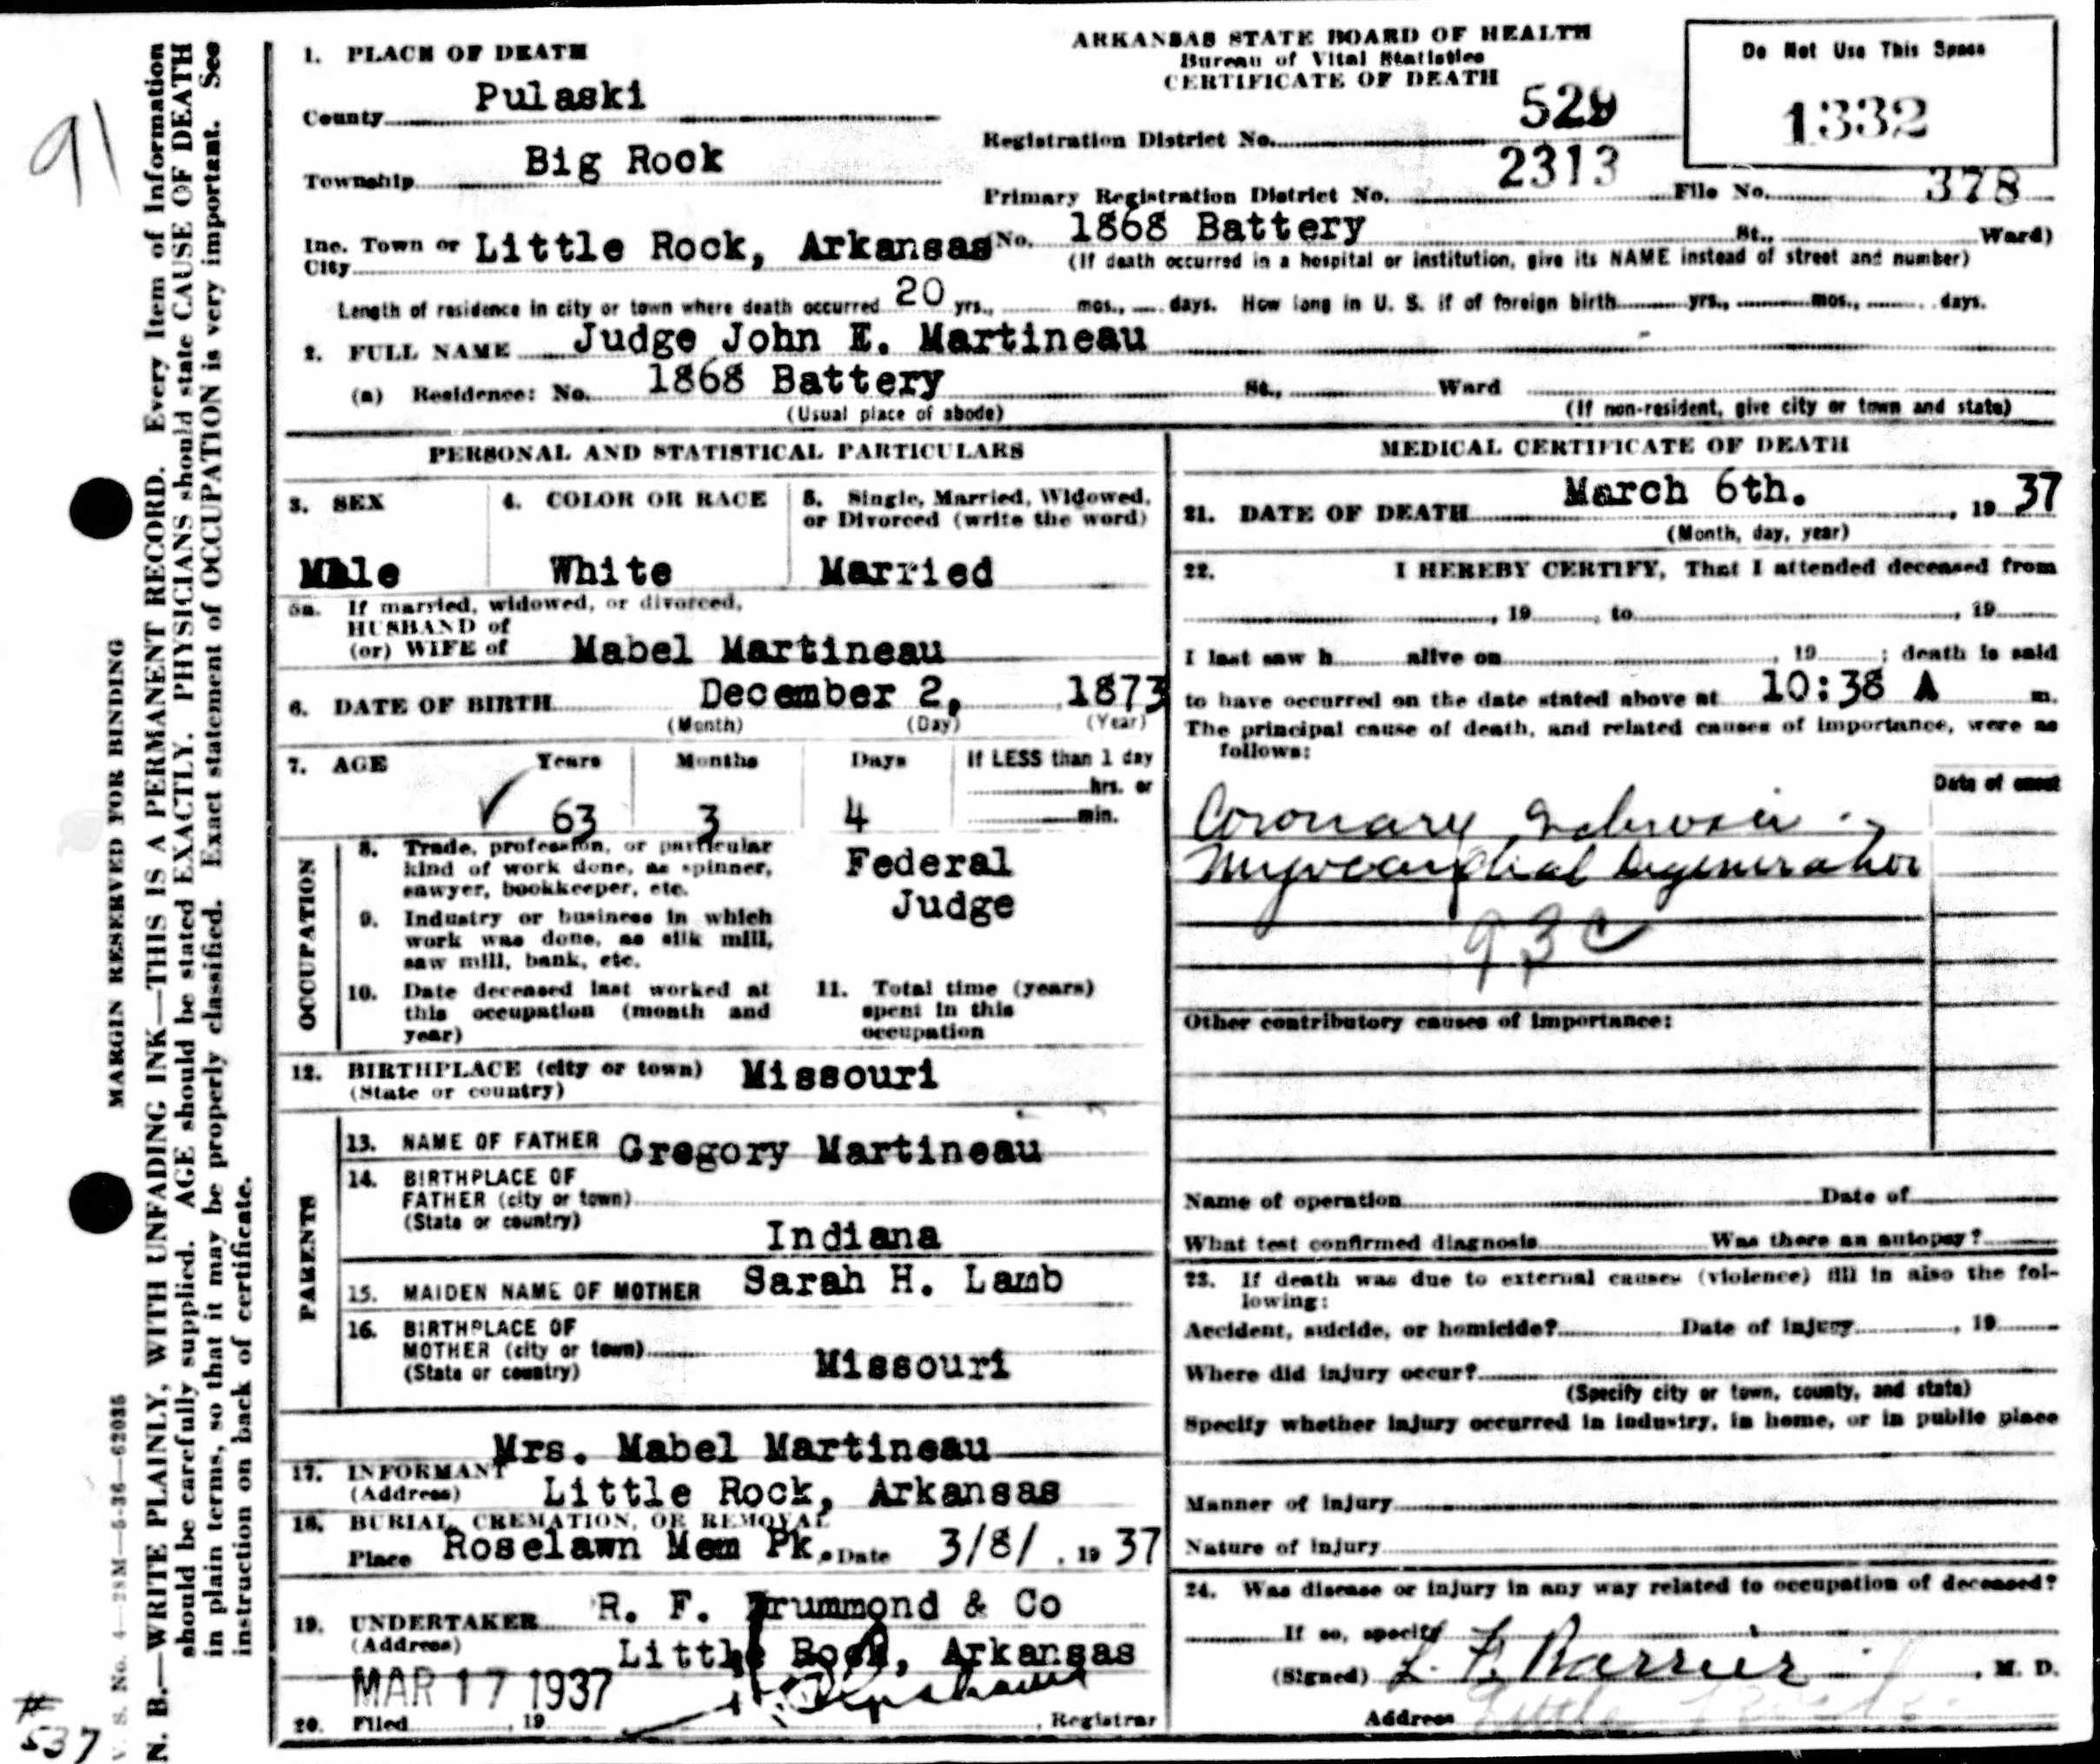 91
MARGIN RESERVED FOR BINDING
V. S. No. 4—28M—5-36—62035
N. B.—WRITE PLAINLY, WITH UNFADING INK—THIS IS A PERMANENT RECORD. Every Item of Information
should be carefully supplied. AGE should be stated EXACTLY. PHYSICIANS should state CAUSE OF DEATH
in plain terms, so that it may be properly classified. Exact statement of OCCUPATION is very important. See
instruction on back of certificate.
#
537
ARKANSAS STATE BOARD OF HEALTH
Bureau of Vital Statistics
CERTIFICATE OF DEATH
Do Not Use This Space
1332
1. PLACE OF DEATH
County Pulaski
Registration District No. 529
Township Big Rock
Primary Registration District No. 2313 File No. 378
Inc. Town or City Little Rock, Arkansas No. 1868 Battery St., Ward)
(If death occurred in a hospital or institution, give its NAME instead of street and number)
Length of residence in city or town where death occurred 20 yrs., mos., days. How long in U. S. if of foreign birth yrs., mos., days.
2. FULL NAME Judge John E. Martineau
(a) Residence: No. 1868 Battery St., Ward
(Usual place of abode) (If non-resident, give city or town and state)
PERSONAL AND STATISTICAL PARTICULARS
3. SEX
Male
4. COLOR OR RACE
White
5. Single, Married, Widowed,
or Divorced (write the word)
Married
5a. If married, widowed, or divorced,
HUSBAND of
(or) WIFE of Mabel Martineau
6. DATE OF BIRTH December 2, 1873
(Month) (Day) (Year)
7. AGE Years Months Days If LESS than 1 day
hrs. or
63 3 4 min.
OCCUPATION
8. Trade, profession, or particular
kind of work done, as spinner,
sawyer, bookkeeper, etc.
Federal
Judge
9. Industry or business in which
work was done, as silk mill,
saw mill, bank, etc.
10. Date deceased last worked at
this occupation (month and
year)
11. Total time (years)
spent in this
occupation
12. BIRTHPLACE (city or town) Missouri
(State or country)
PARENTS
13. NAME OF FATHER Gregory Martineau
14. BIRTHPLACE OF
FATHER (city or town)
(State or country) Indiana
15. MAIDEN NAME OF MOTHER Sarah H. Lamb
16. BIRTHPLACE OF
MOTHER (city or town)
(State or country) Missouri
17. INFORMANT Mrs. Mabel Martineau
(Address) Little Rock, Arkansas
18. BURIAL, CREMATION, OR REMOVAL
Place Roselawn Mem Pk. Date 3/8/, 19 37
19. UNDERTAKER R. F. Drummond & Co
(Address) Little Rock, Arkansas
MAR 17 1937
20. Filed , 19 , Registrar
MEDICAL CERTIFICATE OF DEATH
21. DATE OF DEATH March 6th. , 19 37
(Month, day, year)
22. I HEREBY CERTIFY, That I attended deceased from
, 19 , to , 19
I last saw h alive on , 19 ; death is said
to have occurred on the date stated above at 10:38 A m.
The principal cause of death, and related causes of importance, were as
follows:
Date of onset
Coronary Sclerosis
Myocardial degeneration
93c
Other contributory causes of importance:
Name of operation Date of
What test confirmed diagnosis Was there an autopsy?
23. If death was due to external causes (violence) fill in also the fol-
lowing:
Accident, suicide, or homicide? Date of injury , 19
Where did injury occur?
(Specify city or town, county, and state)
Specify whether injury occurred in industry, in home, or in public place
Manner of injury
Nature of injury
24. Was disease or injury in any way related to occupation of deceased?
If so, specify
(Signed) L. F. Barrier , M. D.
Address Little Rock